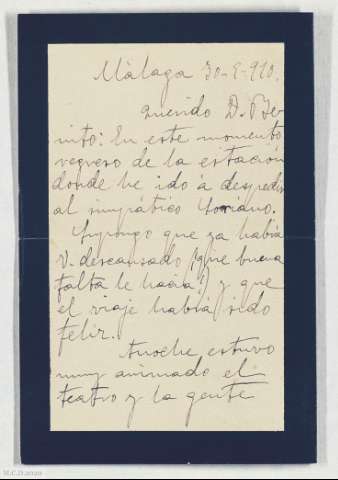 Málaga 30-5-910.
querido D. Be-
nito: En este momento
regreso de la estación
donde he ido á despedir
al simpático Soriano.
Supongo que ya habrá
V. descansado (que buena
falta le hacia!) y que
el viaje habrá sido
feliz.
Anoche estuvo
muy animado el
teatro y la gente